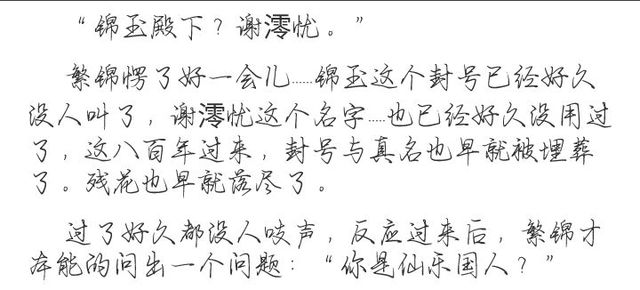 “锦玉殿下？谢澪忧。”
繁锦愣了好一会儿……锦玉这个封号已经好久
没人叫了，谢澪忧这个名字……也已经好久没用过
了，这八百年过来，封号与真名也早就被埋葬
了。残花也早就落尽了。
过了好久都没人吱声，反应过来后，繁锦才
本能的问出一个问题：“你是仙乐国人？”